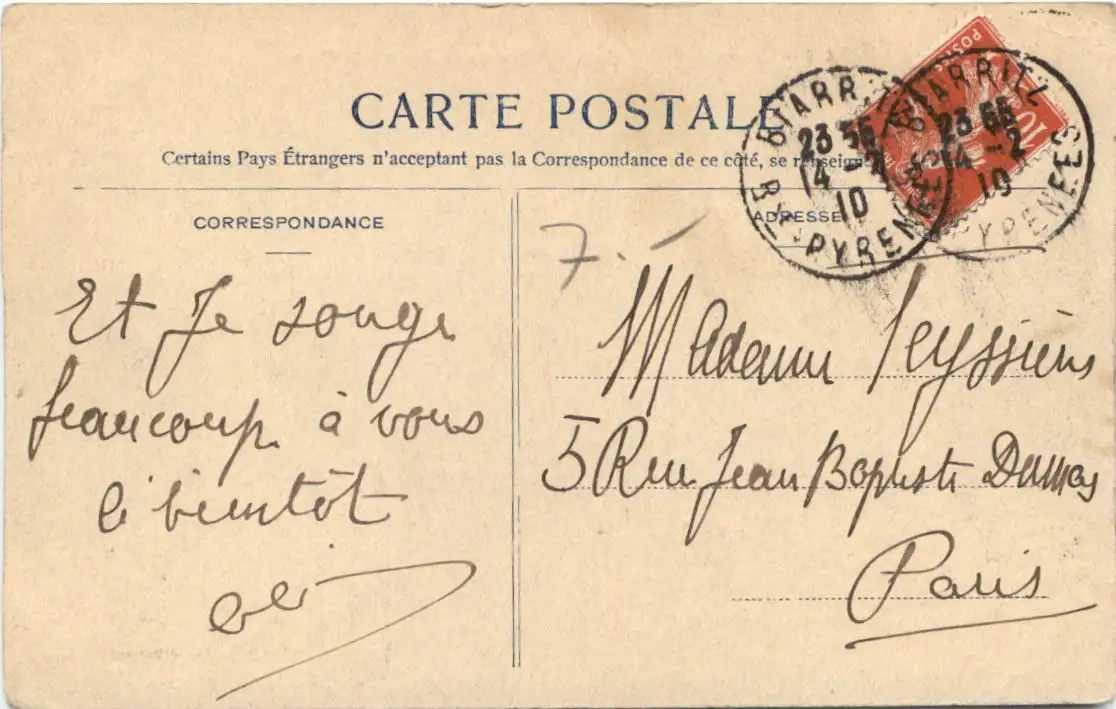 CARTE POSTALE
Certains Pays Étrangers n'acceptant pas la Correspondance de ce côté, se renseigner
CORRESPONDANCE
ADRESSE
POSTES
10
BIARRITZ
23 55
14 - 2
10
BSES PYRENEES
BIARRITZ
23 55
14 - 2
10
PYRENEES
7.-
Et Je songe
beaucoup à vous
à bientôt
Madame Teyssière
5 Rue Jean Baptiste Dumas
Paris